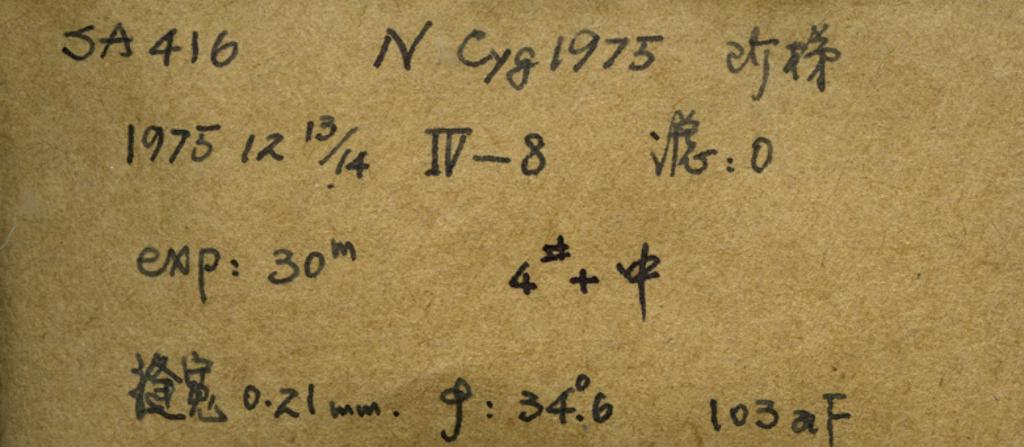 SA 416 N Cyg 1975 阶梯
1975 12 13/14 Ⅳ-8 滤: 0
exp: 30ᵐ 4# + 中
缝宽 0.21 mm. φ: 34.°6 103aF